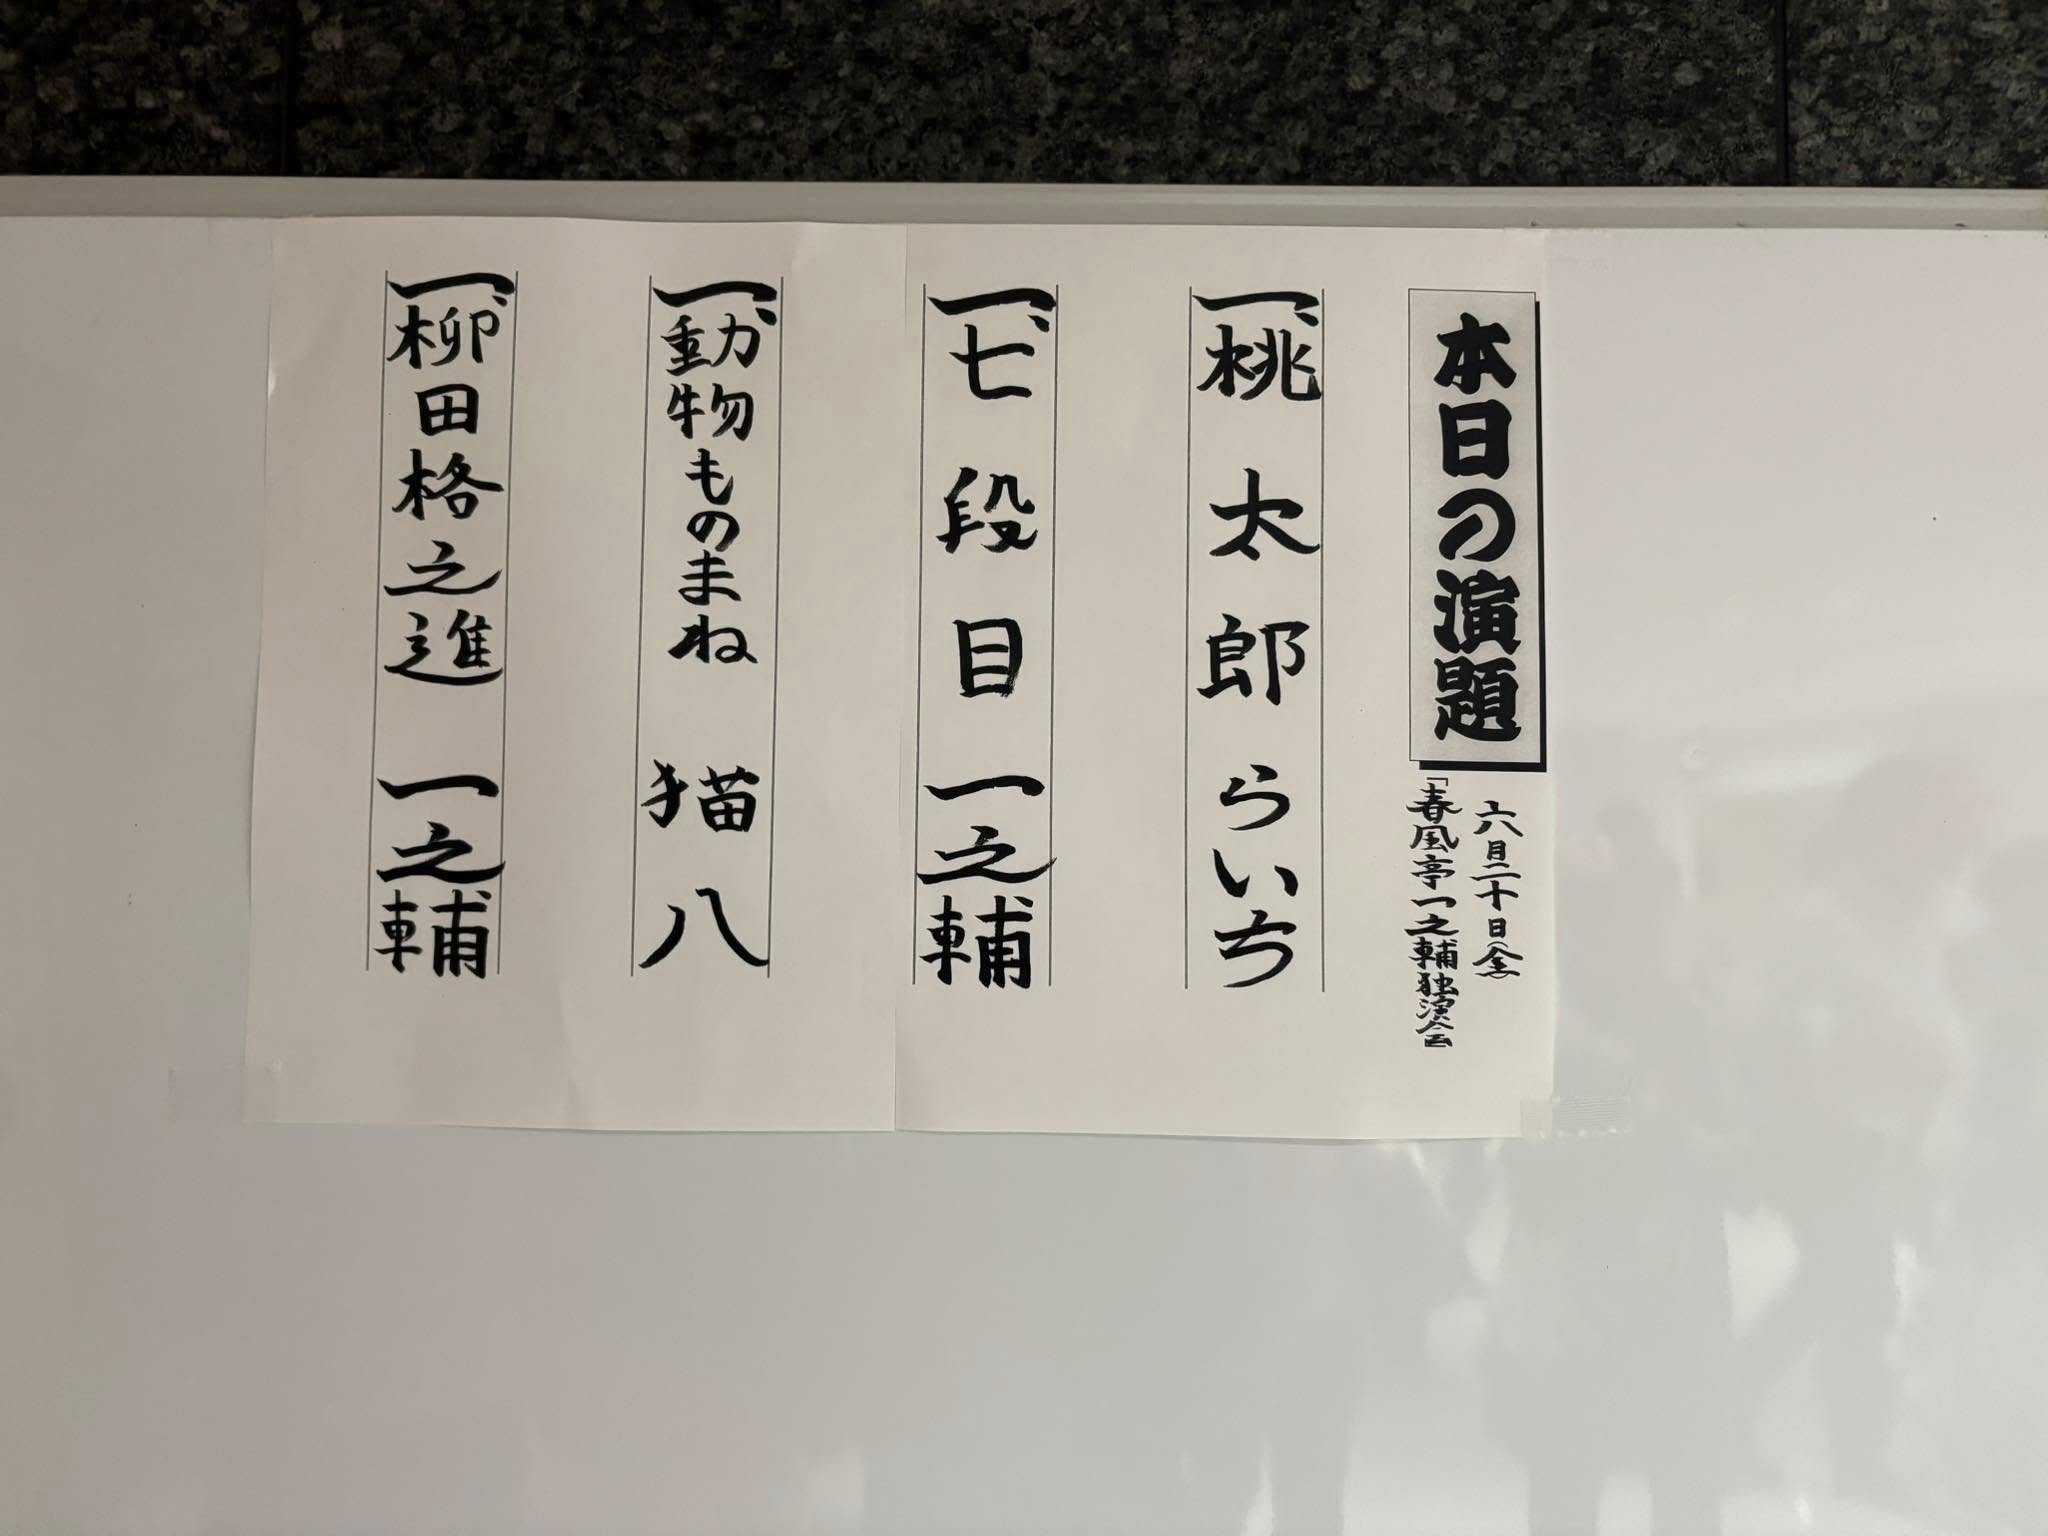 本日の演題
六月二十日(金)
「春風亭一之輔独演会
一、桃太郎 らいち
一、七段目 一之輔
一、動物ものまね 猫八
一、柳田格之進 一之輔